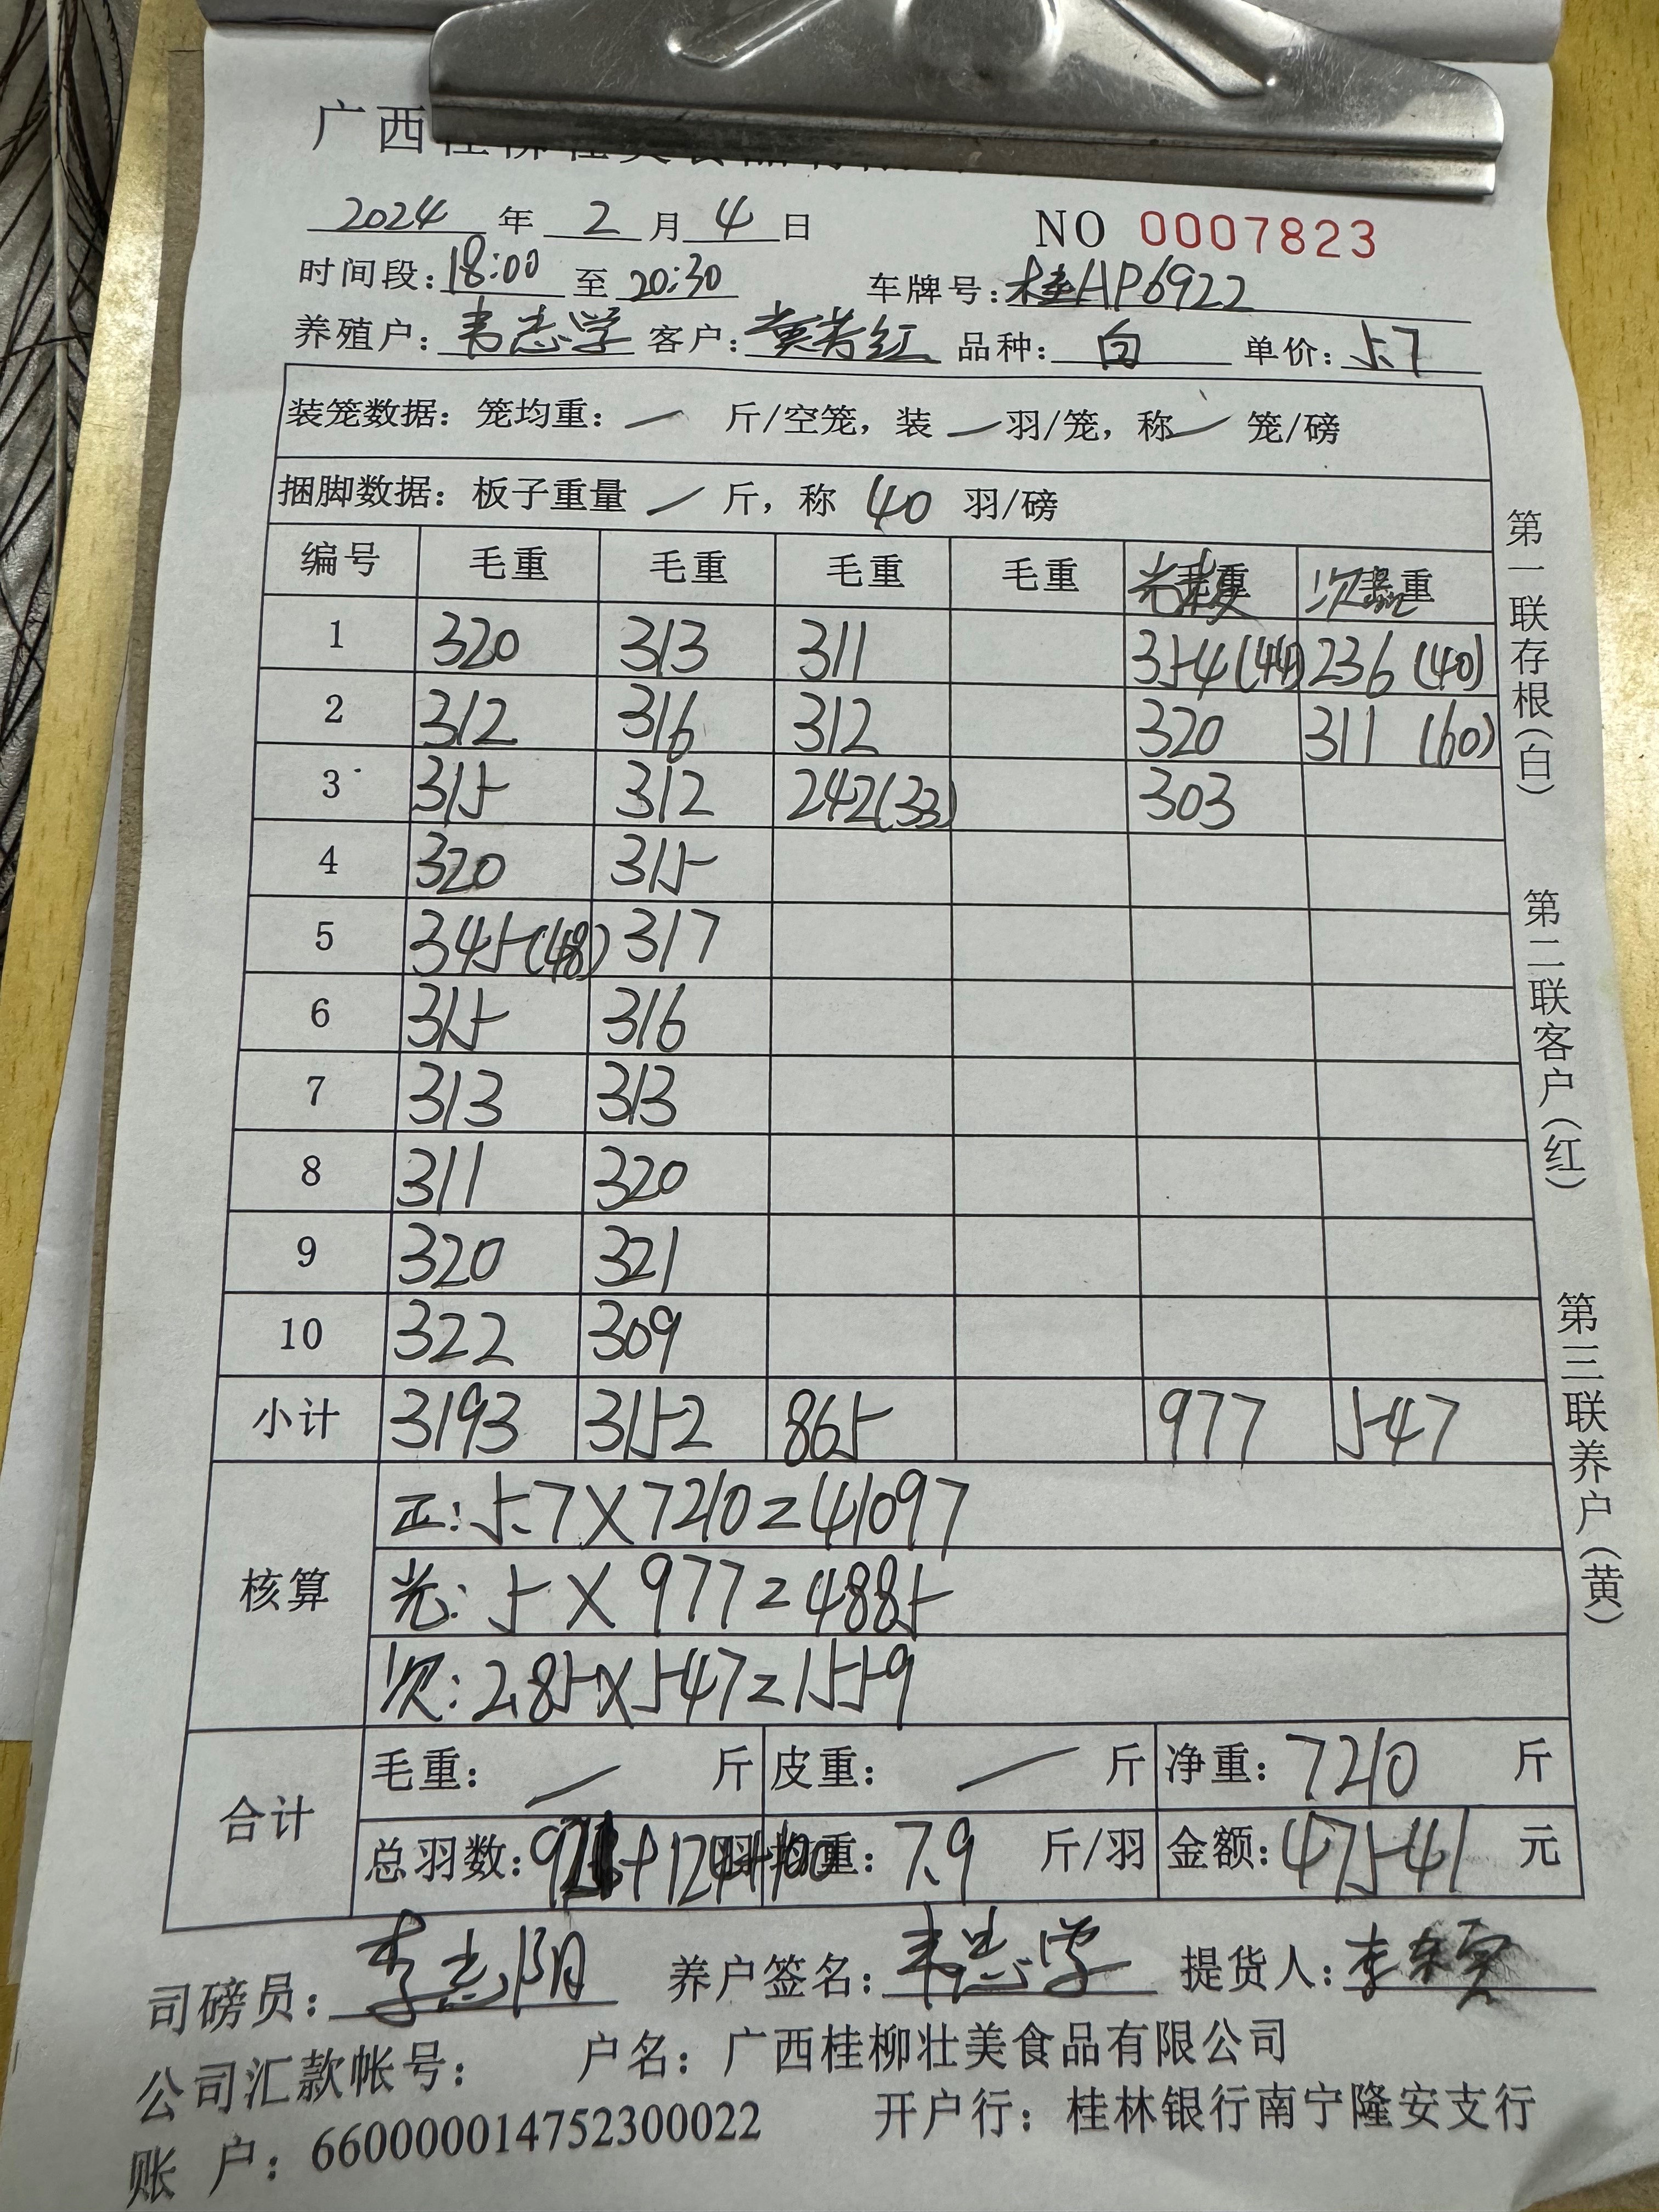 广西
2024 年 2 月 4 日 NO 0007823
时间段:18:00 至 20:30 车牌号:桂AP6922
养殖户:韦志学 客户:黄红 品种:白 单价:5.7
装笼数据:笼均重:一 斤/空笼,装 一 羽/笼,称 一 笼/磅
捆脚数据:板子重量 一 斤,称 40 羽/磅
编号 毛重 毛重 毛重 毛重 光 次重
1 320 313 311 354(44) 236(40)
2 312 316 312 320 311(60)
3 315 312 242(33) 303
4 320 315
5 345(48) 317
6 315 316
7 313 313
8 311 320
9 320 321
10 322 309
小计 3193 3152 865 977 547
核算
正:5.7×7210=41097
光:5×977=4885
次:2.85×547=1559
合计
毛重:一 斤 皮重:一 斤 净重:7210 斤
总羽数:+124+100 重:7.9 斤/羽 金额:47541 元
司磅员:李志阳 养户签名:韦志学 提货人:李
公司汇款帐号: 户名:广西桂柳壮美食品有限公司
账 户:660000014752300022 开户行:桂林银行南宁隆安支行
第一联存根(白) 第二联客户(红) 第三联养户(黄)